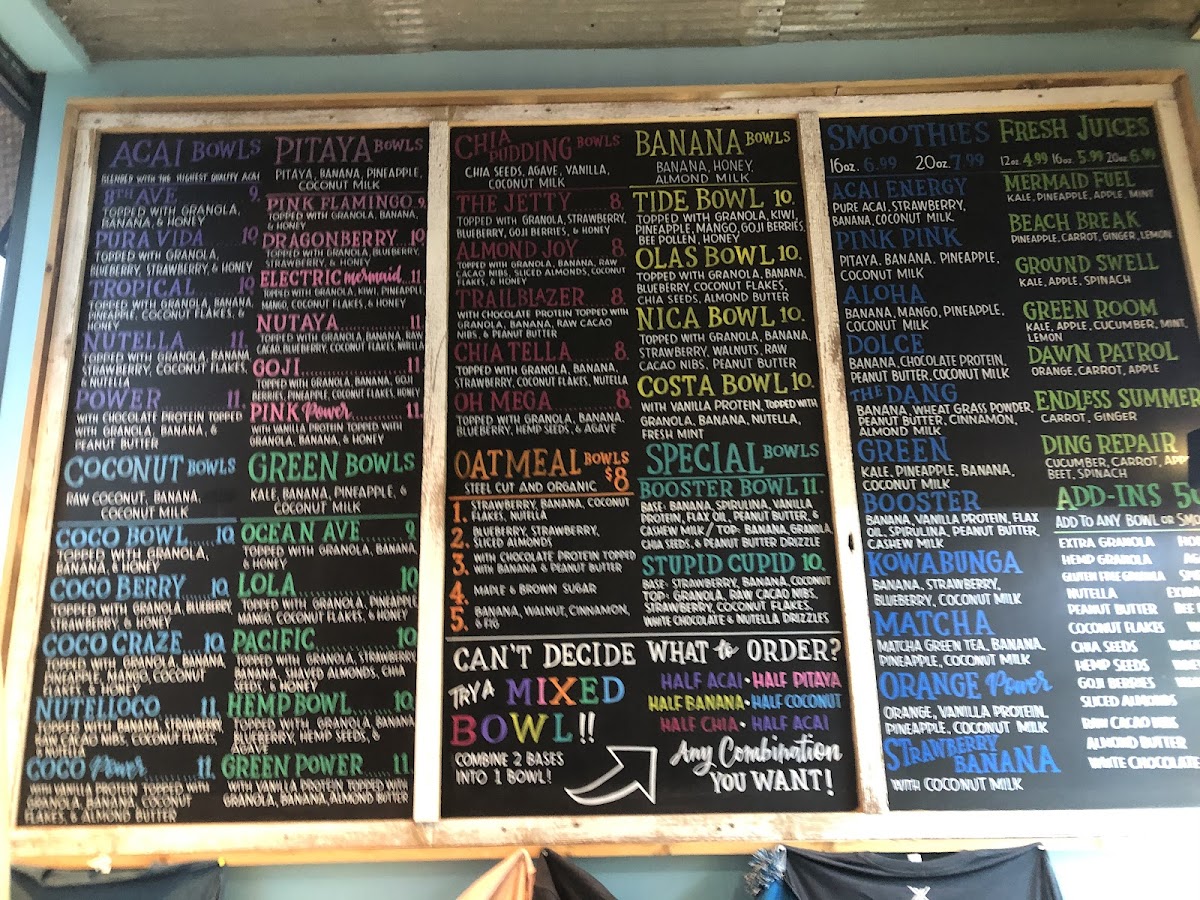 ACAI BOWLS
BLENDED WITH THE HIGHEST QUALITY ACAI
8TH AVE 9.
TOPPED WITH GRANOLA,
BANANA, & HONEY
PURA VIDA 10.
TOPPED WITH GRANOLA,
BLUEBERRY, STRAWBERRY, & HONEY
TROPICAL 10.
TOPPED WITH GRANOLA, BANANA,
PINEAPPLE, COCONUT FLAKES, &
HONEY
NUTELLA 11.
TOPPED WITH GRANOLA, BANANA
STRAWBERRY, COCONUT FLAKES,
& NUTELLA
POWER 11.
WITH CHOCOLATE PROTEIN TOPPED
WITH GRANOLA, BANANA, &
PEANUT BUTTER
PITAYA BOWLS
PITAYA, BANANA, PINEAPPLE,
COCONUT MILK
PINK FLAMINGO 9.
TOPPED WITH GRANOLA, BANANA,
& HONEY
DRAGONBERRY 10.
TOPPED WITH GRANOLA, BLUEBERRY,
STRAWBERRY, & HONEY
ELECTRIC mermaid 11.
TOPPED WITH GRANOLA, KIWI, PINEAPPLE,
MANGO, COCONUT FLAKES, & HONEY
NUTAYA 11.
TOPPED WITH GRANOLA, BANANA, RAW
CACAO, BLUEBERRY, COCONUT FLAKES, NUTELLA
GOJI 11.
TOPPED WITH GRANOLA, BANANA, GOJI
BERRIES, PINEAPPLE, COCONUT FLAKES, HONEY
PINK Power 11.
WITH VANILLA PROTEIN TOPPED WITH
GRANOLA, BANANA, & HONEY
COCONUT BOWLS
RAW COCONUT, BANANA,
COCONUT MILK
COCO BOWL 10.
TOPPED WITH GRANOLA,
BANANA, & HONEY
COCO BERRY 10.
TOPPED WITH GRANOLA, BLUEBERRY,
STRAWBERRY, & HONEY
COCO CRAZE 10.
TOPPED WITH GRANOLA, BANANA,
PINEAPPLE, MANGO, COCONUT
FLAKES, & HONEY
NUTELLOCO 11.
TOPPED WITH BANANA, STRAWBERRY,
CACAO NIBS, COCONUT FLAKES,
& NUTELLA
COCO Power 11.
WITH VANILLA PROTEIN TOPPED WITH
GRANOLA, BANANA, COCONUT
FLAKES, & ALMOND BUTTER
GREEN BOWLS
KALE, BANANA, PINEAPPLE, &
COCONUT MILK
OCEAN AVE 9.
TOPPED WITH GRANOLA, BANANA,
& HONEY
LOLA 10.
TOPPED WITH GRANOLA, PINEAPPLE
MANGO, COCONUT FLAKES, & HONEY
PACIFIC 10.
TOPPED WITH GRANOLA, STRAWBERRY
BANANA, SHAVED ALMONDS, CHIA
SEEDS, & HONEY
HEMP BOWL 10.
TOPPED WITH GRANOLA, BANANA
BLUEBERRY, HEMP SEEDS, &
AGAVE
GREEN POWER 11.
WITH VANILLA PROTEIN TOPPED WITH
GRANOLA, BANANA, ALMOND BUTTER
CHIA PUDDING BOWLS
CHIA SEEDS, AGAVE, VANILLA,
COCONUT MILK
THE JETTY 8.
TOPPED WITH GRANOLA, STRAWBERRY,
BLUEBERRY, GOJI BERRIES, & HONEY
ALMOND JOY 8.
TOPPED WITH GRANOLA, BANANA, RAW
CACAO NIBS, SLICED ALMONDS, COCONUT
FLAKES, & HONEY
TRAILBLAZER 8.
WITH CHOCOLATE PROTEIN TOPPED WITH
GRANOLA, BANANA, RAW CACAO
NIBS, & PEANUT BUTTER
CHIA TELLA 8.
TOPPED WITH GRANOLA, BANANA,
STRAWBERRY, COCONUT FLAKES, NUTELLA
OH MEGA 8.
TOPPED WITH GRANOLA, BANANA.
BLUEBERRY, HEMP SEEDS, & AGAVE
OATMEAL BOWLS
STEEL CUT AND ORGANIC $8
1. STRAWBERRY, BANANA, COCONUT
FLAKES, NUTELLA
2. BLUEBERRY, STRAWBERRY,
SLICED ALMONDS
3. WITH CHOCOLATE PROTEIN TOPPED
WITH BANANA & PEANUT BUTTER
4. MAPLE & BROWN SUGAR
5. BANANA, WALNUT, CINNAMON,
& FIG
BANANA BOWLS
BANANA, HONEY,
ALMOND MILK
TIDE BOWL 10.
TOPPED WITH GRANOLA, KIWI,
PINEAPPLE, MANGO, GOJI BERRIES,
BEE POLLEN, HONEY
OLAS BOWL 10.
TOPPED WITH GRANOLA, BANANA,
BLUEBERRY, COCONUT FLAKES,
CHIA SEEDS, ALMOND BUTTER
NICA BOWL 10.
TOPPED WITH GRANOLA, BANANA,
STRAWBERRY, WALNUTS, RAW
CACAO NIBS, PEANUT BUTTER
COSTA BOWL 10.
WITH VANILLA PROTEIN, TOPPED WITH
GRANOLA, BANANA, NUTELLA,
FRESH MINT
SPECIAL BOWLS
BOOSTER BOWL 11.
BASE: BANANA, SPIRULINA, VANILLA
PROTEIN, FLAX OIL, PEANUT BUTTER, &
CASHEW MILK / TOP: BANANA, GRANOLA,
CHIA SEEDS, & PEANUT BUTTER DRIZZLE
STUPID CUPID 10.
BASE: STRAWBERRY, BANANA, COCONUT
TOP: GRANOLA, RAW CACAO NIBS,
STRAWBERRY, COCONUT FLAKES,
WHITE CHOCOLATE & NUTELLA DRIZZLES
CAN'T DECIDE WHAT to ORDER?
TRY A MIXED
BOWL!!
COMBINE 2 BASES
INTO 1 BOWL!
HALF ACAI • HALF PITAYA
HALF BANANA • HALF COCONUT
HALF CHIA • HALF ACAI
Any Combination
YOU WANT!
SMOOTHIES
16oz. 6.99 20oz. 7.99
ACAI ENERGY
PURE ACAI, STRAWBERRY,
BANANA, COCONUT MILK
PINK PINK
PITAYA, BANANA, PINEAPPLE,
COCONUT MILK
ALOHA
BANANA, MANGO, PINEAPPLE,
COCONUT MILK
DOLCE
BANANA, CHOCOLATE PROTEIN,
PEANUT BUTTER, COCONUT MILK
THE DANG
BANANA, WHEAT GRASS POWDER,
PEANUT BUTTER, CINNAMON,
ALMOND MILK
GREEN
KALE, PINEAPPLE, BANANA,
COCONUT MILK
BOOSTER
BANANA, VANILLA PROTEIN, FLAX
OIL, SPIRULINA, PEANUT BUTTER,
CASHEW MILK
KOWABUNGA
BANANA, STRAWBERRY,
BLUEBERRY, COCONUT MILK
MATCHA
MATCHA GREEN TEA, BANANA,
PINEAPPLE, COCONUT MILK
ORANGE Power
ORANGE, VANILLA PROTEIN,
PINEAPPLE, COCONUT MILK
STRAWBERRY
BANANA
WITH COCONUT MILK
FRESH JUICES
12oz. 4.99 16oz. 5.99 20oz 6.99
MERMAID FUEL
KALE, PINEAPPLE, APPLE, MINT
BEACH BREAK
PINEAPPLE, CARROT, GINGER, LEMON
GROUND SWELL
KALE, APPLE, SPINACH
GREEN ROOM
KALE, APPLE, CUCUMBER, MINT,
LEMON
DAWN PATROL
ORANGE, CARROT, APPLE
ENDLESS SUMMER
CARROT, GINGER
DING REPAIR
CUCUMBER, CARROT, APP
BEET, SPINACH
ADD-INS
ADD TO ANY BOWL OR SMO
EXTRA GRANOLA
HEMP GRANOLA
GLUTEN FREE GRANOLA
NUTELLA
PEANUT BUTTER
COCONUT FLAKES
CHIA SEEDS
HEMP SEEDS
GOJI BERRIES
SLICED ALMONDS
RAW CACAO NIBS
ALMOND BUTTER
WHITE CHOCOLATE